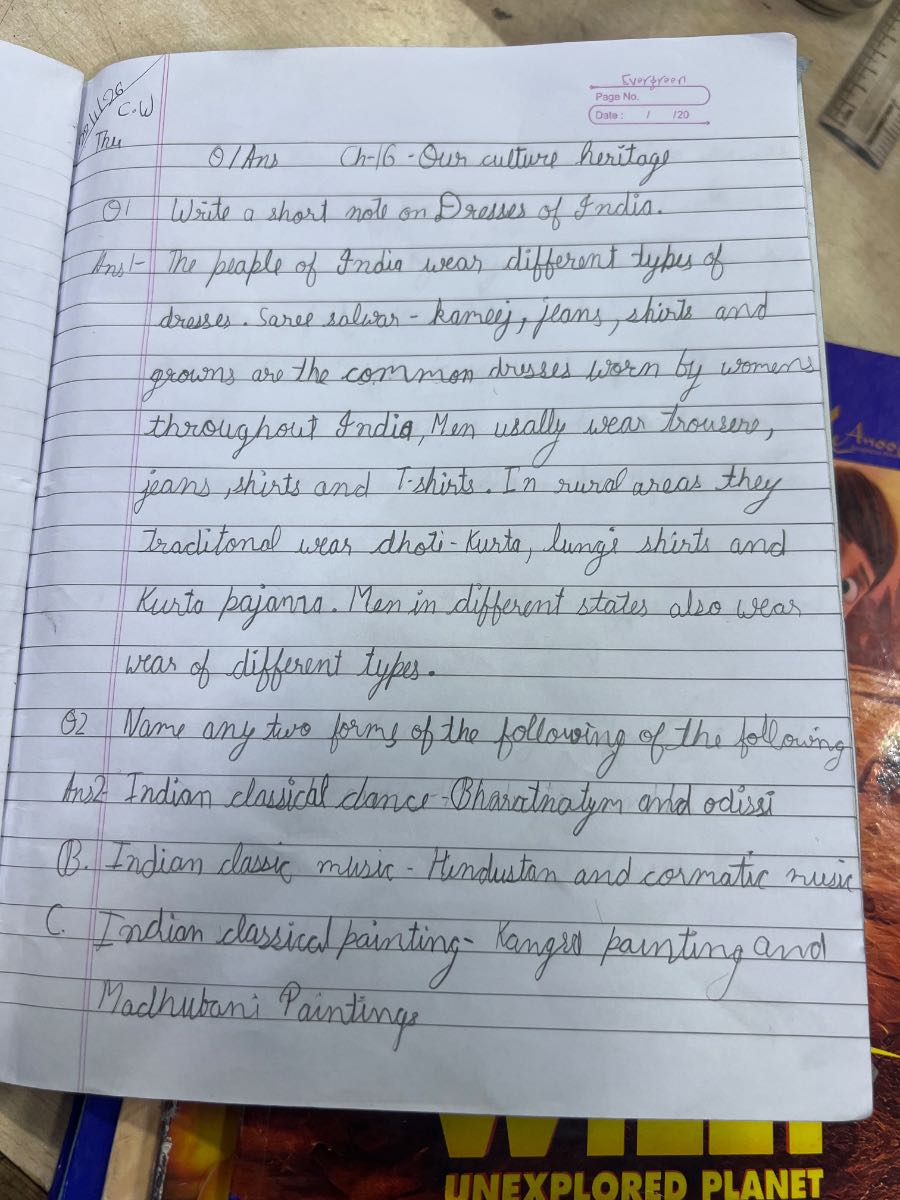 C.W
Thu
Evergreen
Page No.
Date : / /20
Q/Ans Ch-16 - Our culture heritage
Q1 Write a short note on Dresses of India.
Ans1- The peaple of India wear different types of
dresses. Saree salwar - kameej, jeans, shirts and
growns are the common dresses worn by womens
throughout India, Men usally wear trousers,
jeans, shirts and T-shirts. In rural areas they
traditonal wear dhoti - Kurta, lungi shirts and
Kurta pajama. Men in different states also wear
wear of different types.
Q2 Name any two forms of the following of the following
Ans2- Indian classical dance - Bharatnatym and odissi
B. Indian classic music - Hindustan and cormatic music
C. Indian classical painting - Kangra painting and
Madhubani Paintings
Anoo
UNEXPLORED PLANET